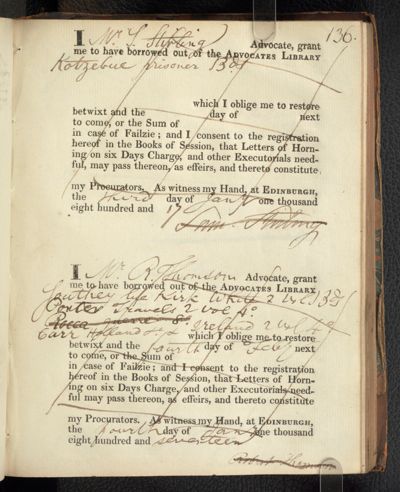 136.
I Mr J. Stirling Advocate, grant
me to have borrowed out, of the ADVOCATES LIBRARY
Kotzebue prisoner
which I oblige me to restore
betwixt and the day of next
to come, or the Sum of
in case of Failzie; and I consent to the registration
hereof in the Books of Session, that Letters of Horn-
ing on six Days Charge, and other Executorials need-
ful, may pass thereon, as effeirs, and thereto constitute
my Procurators. As witness my Hand, at EDINBURGH,
the third day of Jany one thousand
eight hundred and 17
Stirling
I Mr R. Thomson Advocate, grant
me to have borrowed out of the ADVOCATES LIBRARY
Southey life Kirk White 2 vol
Porter Travels 2 vol 4o
Ireland 2 vol
Carr Holland which I oblige me to restore
betwixt and the fourth day of Feby next
to come, or the Sum of
in case of Failzie; and I consent to the registration
hereof in the Books of Session, that Letters of Horn-
ing on six Days Charge, and other Executorials need-
ful may pass thereon, as effeirs, and thereto constitute
my Procurators. As witness my Hand, at EDINBURGH,
the fourth day of Jany one thousand
eight hundred and seventeen
Robert Thomson